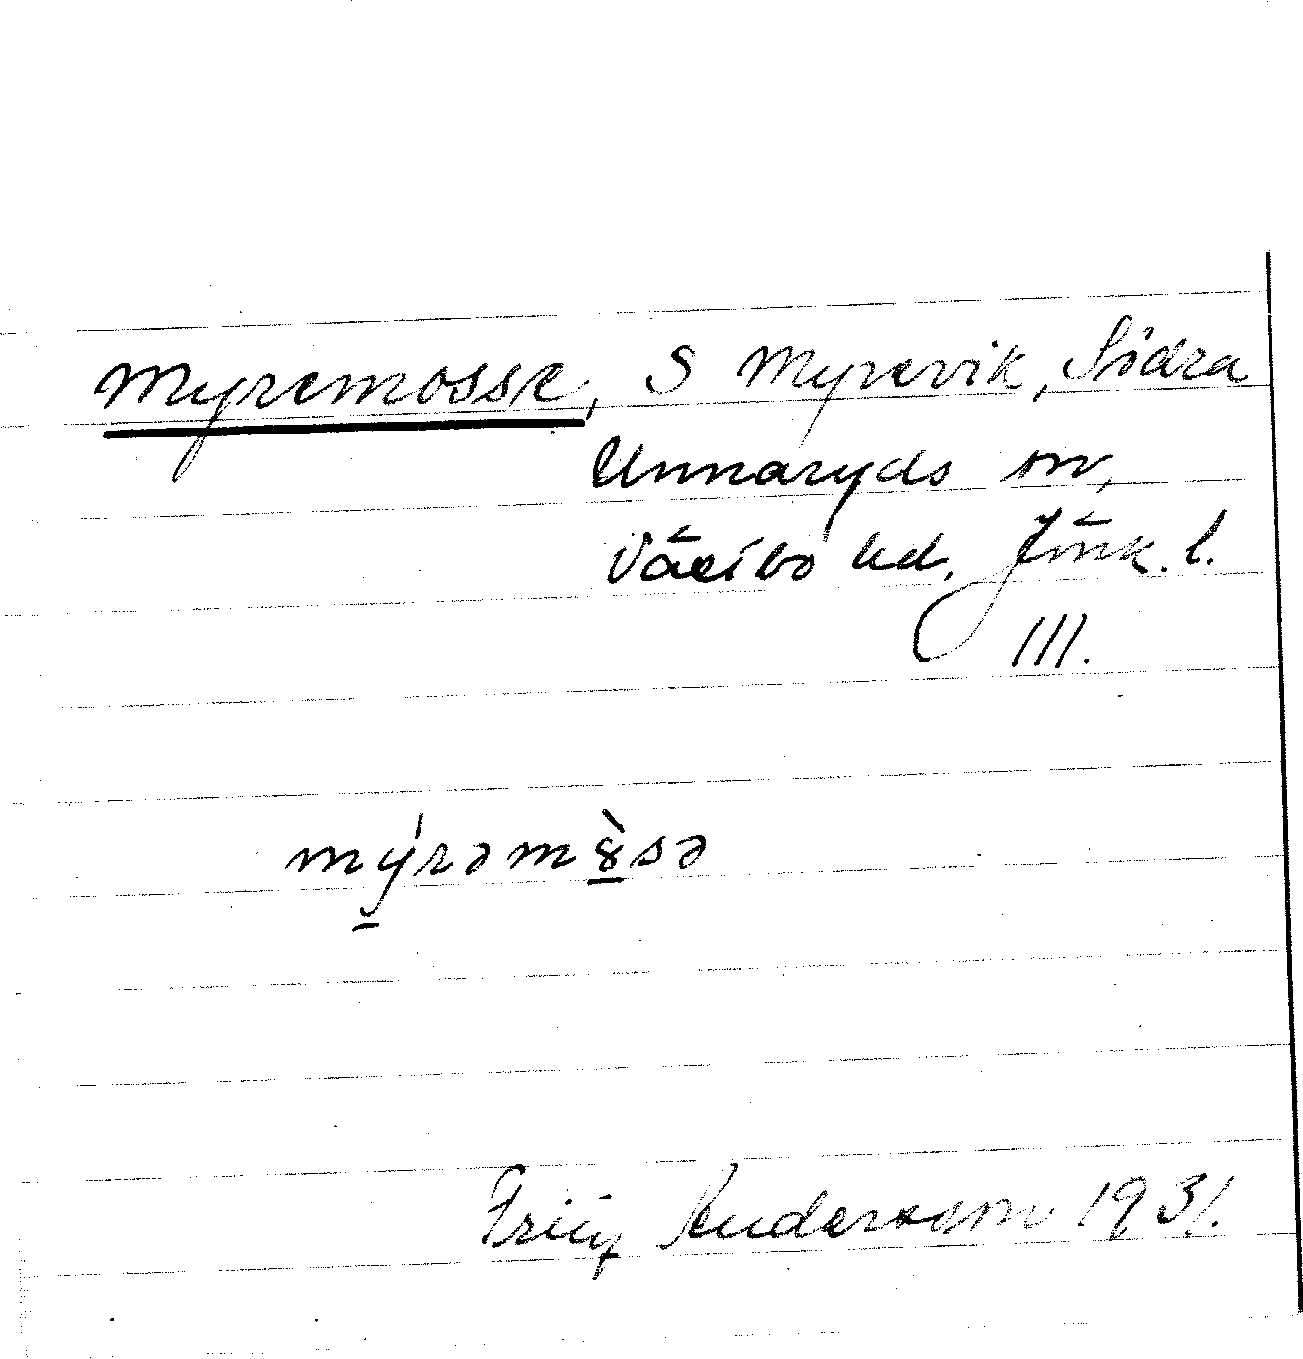 Myremosse, S Myrevik, Södra
Unnaryds sn,
Västbo hd. Jönk. l.
III.
mýrəm8̀sə
Andersson 1931.